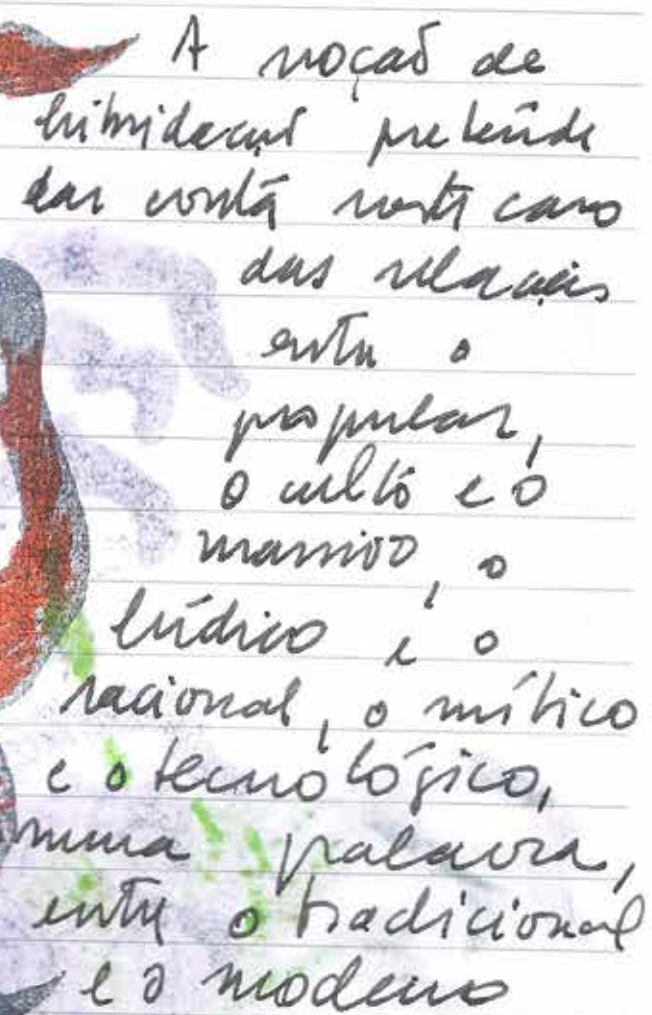 A noção de
hibridação pretende
dar conta neste caso
das relações
entre o
popular,
o culto e o
massivo, o
lúdico e o
racional, o mítico
e o tecnológico,
numa palavra,
entre o tradicional
e o moderno